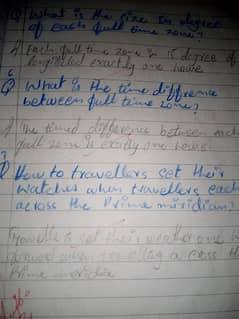 Q What is the size in degree
of each full time zone?
A Each full time zone is 15 degree of
longitated exactly one houre
6
Q What is the time difference
between full time zones?
A The timed difference between each
full zone is exactly one hours.
7
Q How to travellers set their
watches when travellers each
across the Prime miridian?
Travelles set their one h
when travelling a cross th
Prime meridia